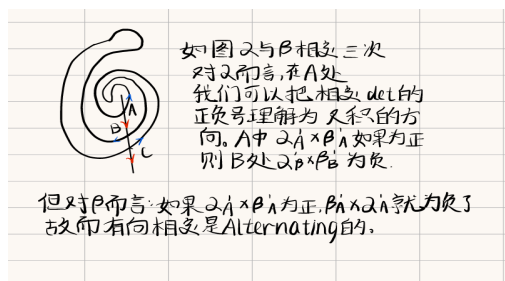 如图 α与β相交三次
对α而言,在A处
我们可以把相交det的
正负号理解为 叉积的方
A
向。A中 α'A×β'A 如果为正
B
则 B处 α'B×β'B 为负.
C
但对β而言:如果 α'A×β'A 为正,β'A×α'A 就为负了
故而有向相交是Alternating的。